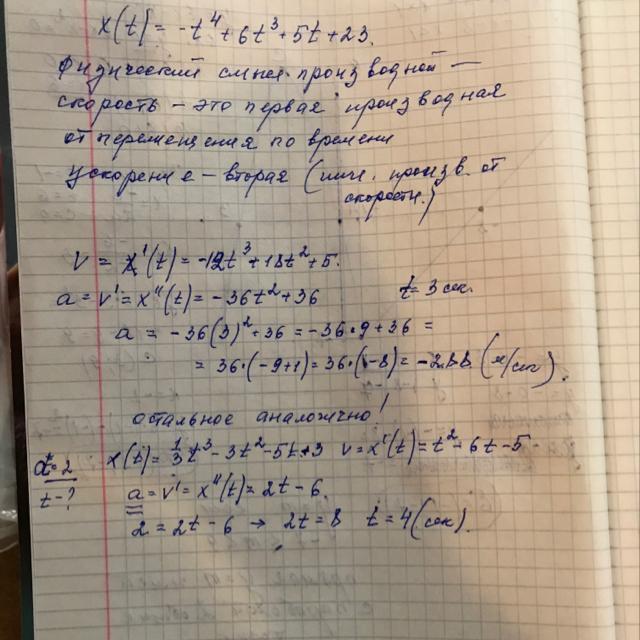 x(t) = -t⁴ + 6t³ + 5t + 23.
Физический смысл производной —
скорость – это первая производная
от перемещения по времени
Ускорение – вторая (или произв. от
скорости.)
v = x'(t) = -12t³ + 18t² + 5.
a = v' = x''(t) = -36t² + 36 t = 3 сек.
a = -36(3)² + 36 = -36·9 + 36 =
= 36·(-9+1) = 36·(-8) = -288 (м/сек).
остальное аналогично!
x(t) = 1/3 t³ - 3t² - 5t + 3 v = x'(t) = t² - 6t - 5
a = 2
t - ?
a = v' = x''(t) = 2t - 6.
2 = 2t - 6 → 2t = 8 t = 4 (сек).